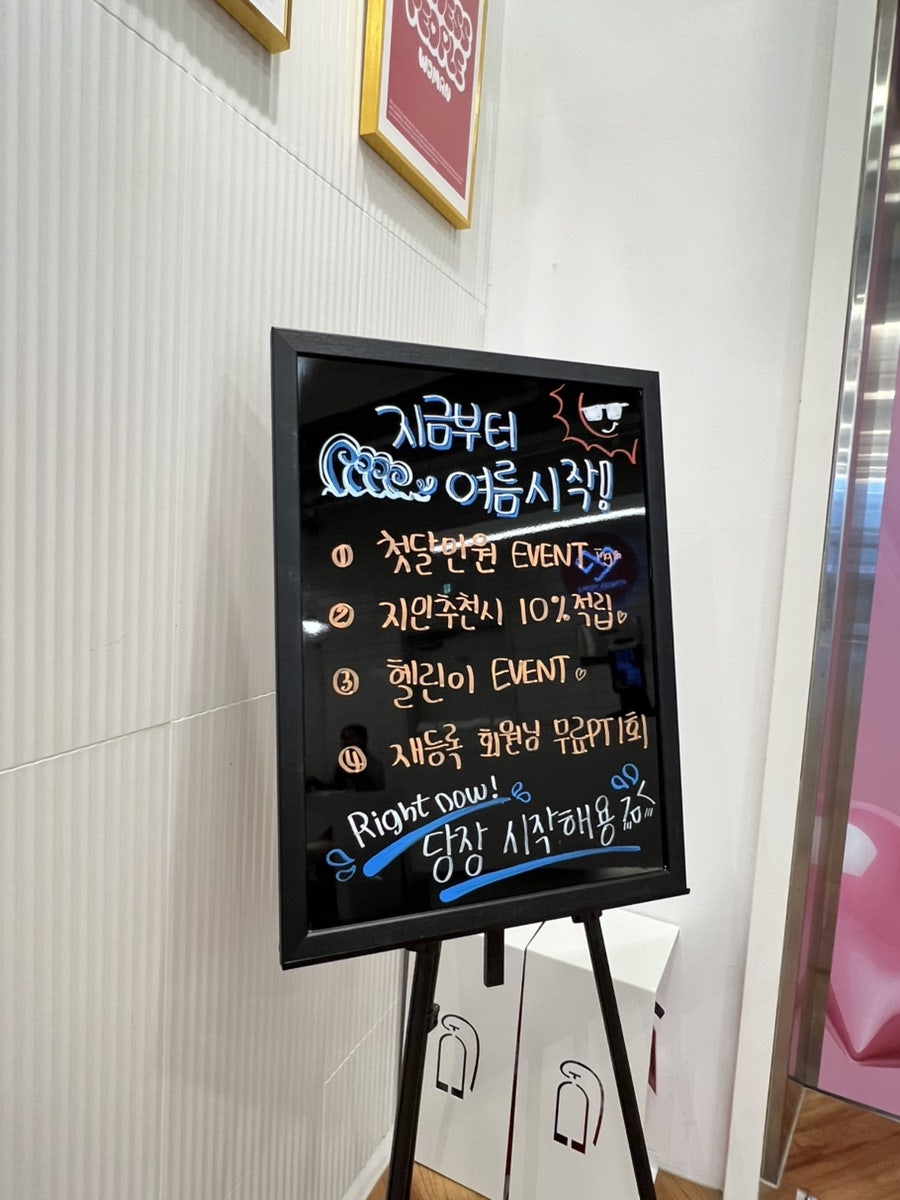 PEOPLE
WOMAN
지금부터
여름시작!!
① 첫달만원 EVENT
② 지인추천시 10%적립♡
③ 헬린이 EVENT♡
④ 재등록 회원님 무료PT1회
Right now!
당장 시작해용